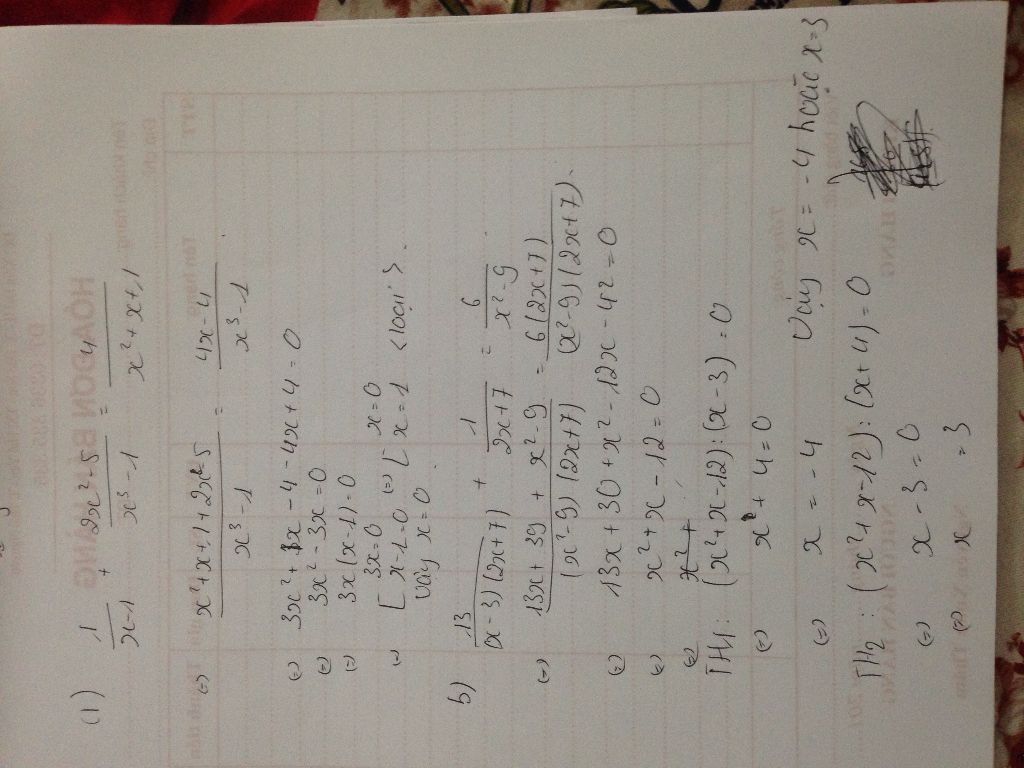 (1) 1/(x-1) + (2x²-5)/(x³-1) = 4/(x²+x+1)
(=) (x²+x+1+2x²-5)/(x³-1) = (4x-4)/(x³-1)
(=) 3x²+x-4-4x+4=0
(=) 3x²-3x=0
(=) 3x(x-1)=0
(=) [3x=0 (=) [x=0
x-1=0 x=1 <loại>.
Vậy x=0
b) 13/((x-3)(2x+7)) + 1/(2x+7) = 6/(x²-9)
(=) (13x+39+x²-9)/((x²-9)(2x+7)) = 6(2x+7)/((x²-9)(2x+7)).
(=) 13x+30+x²-12x-42=0
(=) x²+x-12=0
(=) x²+
TH1: (x²+x-12):(x-3)=0
(=) x+4=0
(=) x=-4 Vậy x=-4 hoặc x=3
TH2: (x²+x-12):(x+4)=0
(=) x-3=0
(=) x=3